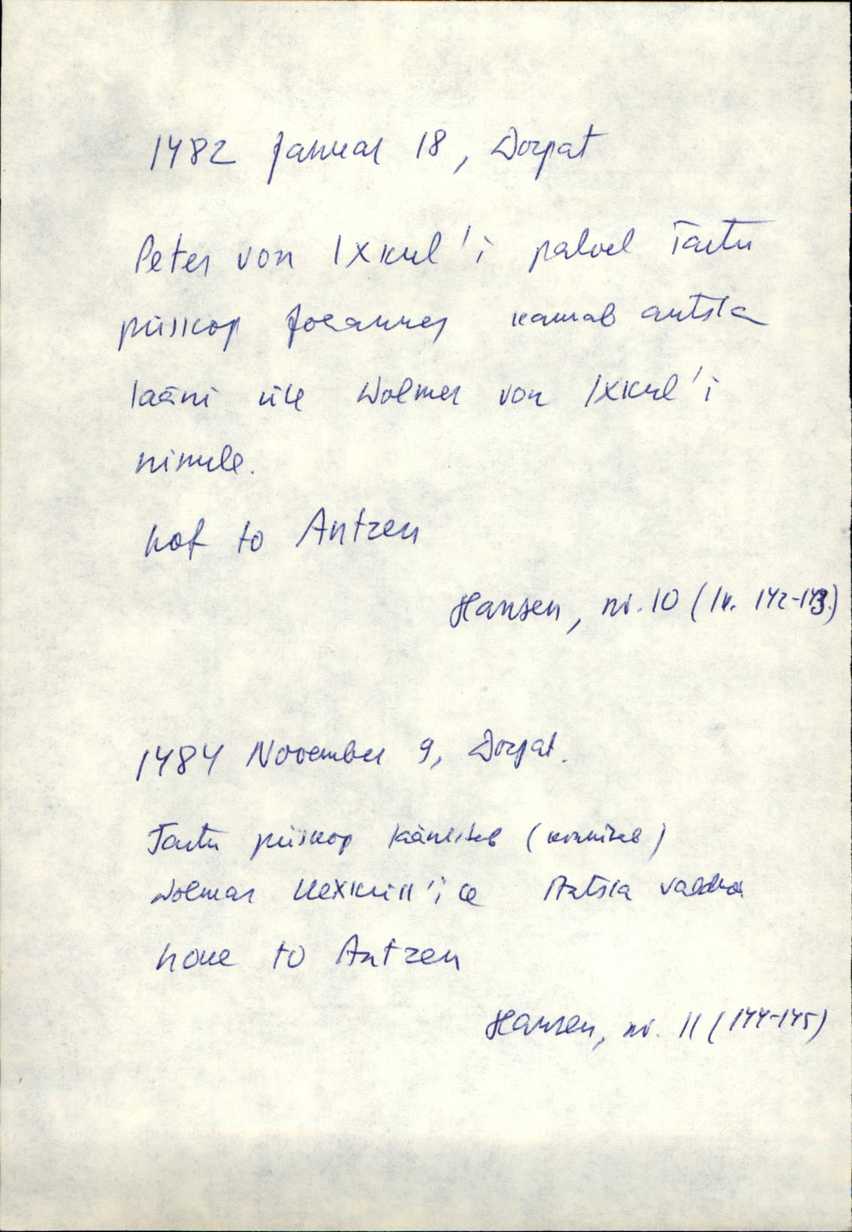 1482 Januar 18, Dorpat
Peter von Ixkul'i palvel Tartu
piiskop Johannes kannab antsla
lääni üle Wolmer von Ixkul'i
nimele.
hof to Antzen
Hansen, nr. 10 (lk. 142-143.)
1484 November 9, Dorpat.
Tartu piiskop läänistab (kinnitab)
Wolmar Uexküll'ile Antsla valdus
hove to Antzen
Hansen, nr. 11 (144-145)